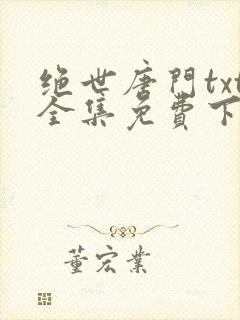 绝世唐門txt
全集免費下
董宏業